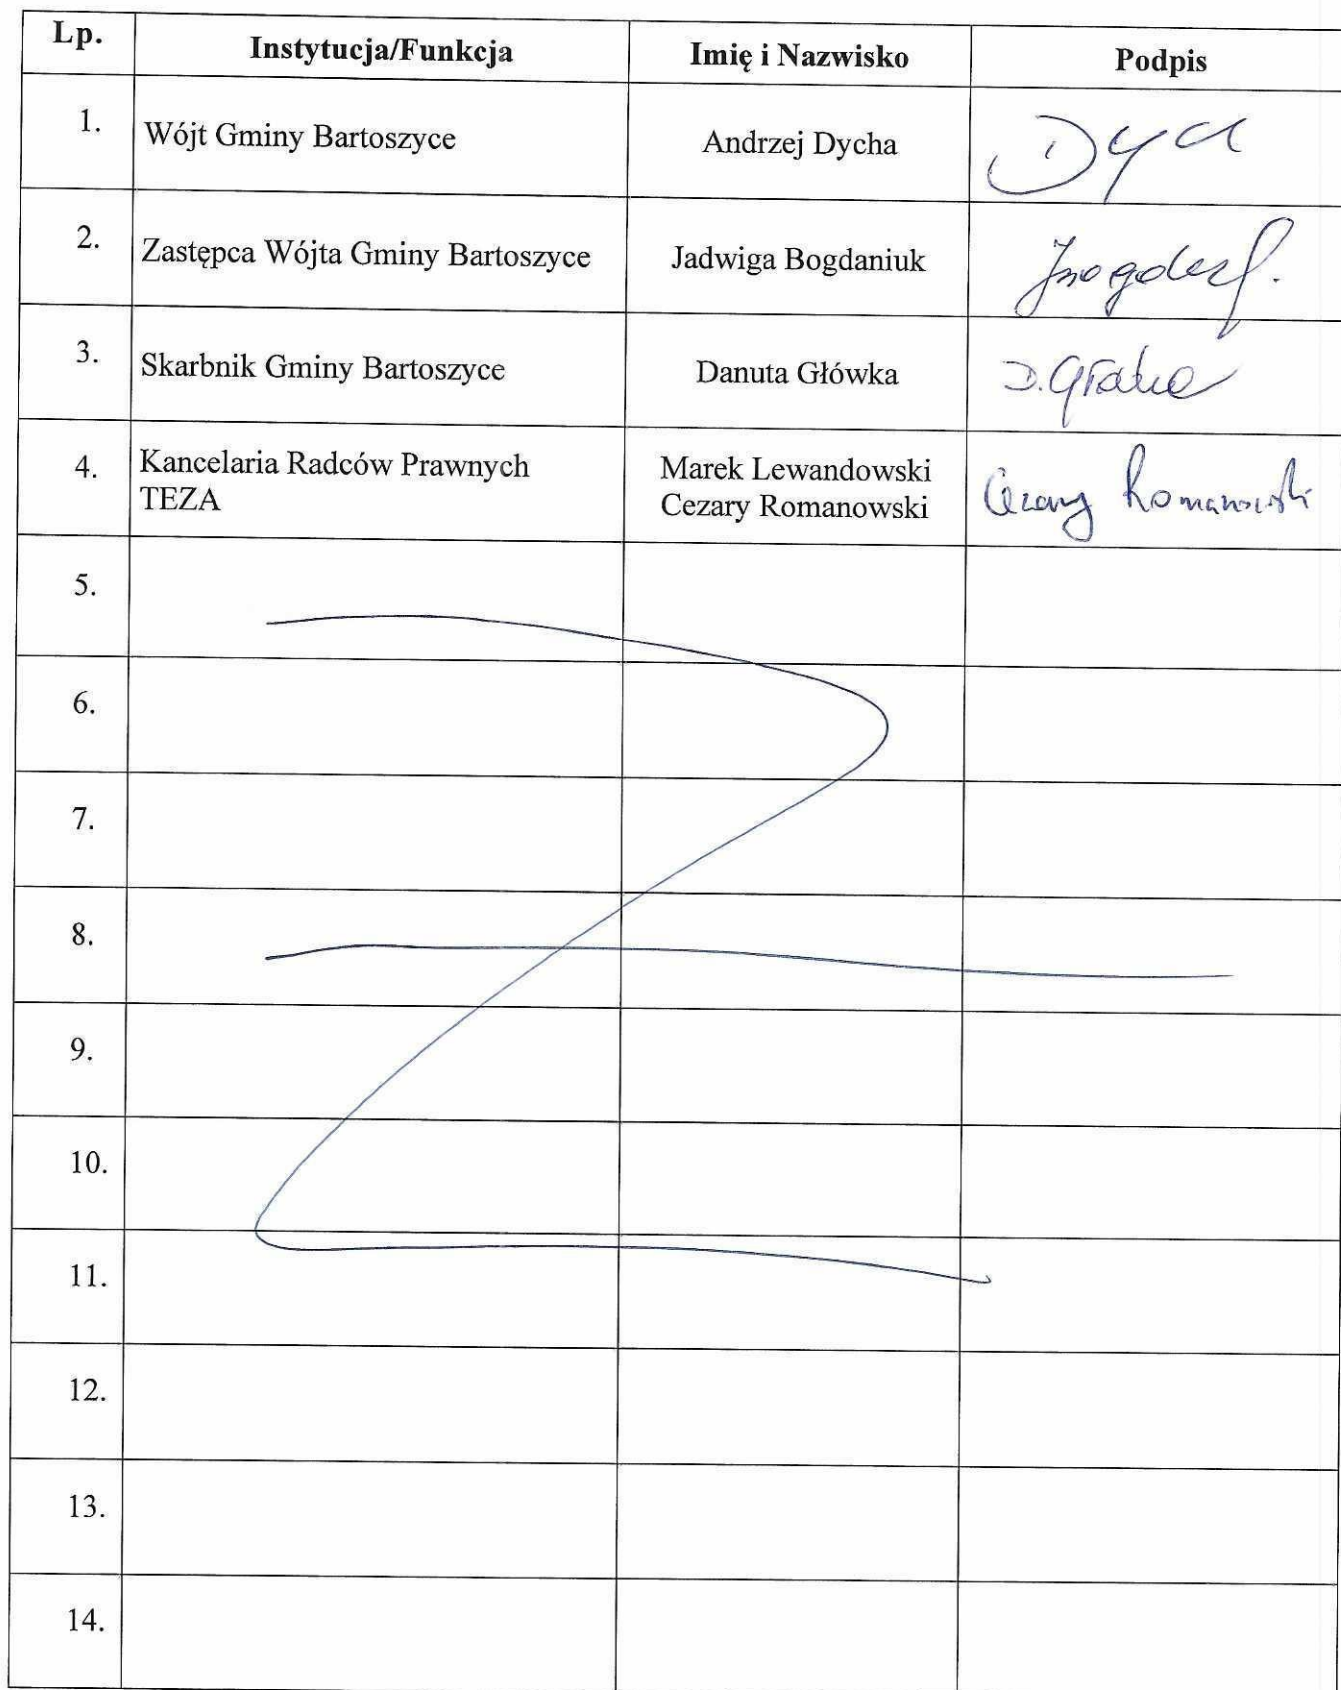 Lp. Instytucja/Funkcja Imię i Nazwisko Podpis
1. Wójt Gminy Bartoszyce Andrzej Dycha
2. Zastępca Wójta Gminy Bartoszyce Jadwiga Bogdaniuk
3. Skarbnik Gminy Bartoszyce Danuta Główka
4. Kancelaria Radców Prawnych Marek Lewandowski
TEZA Cezary Romanowski Cezary Romanowski
5.
6.
7.
8.
9.
10.
11.
12.
13.
14.